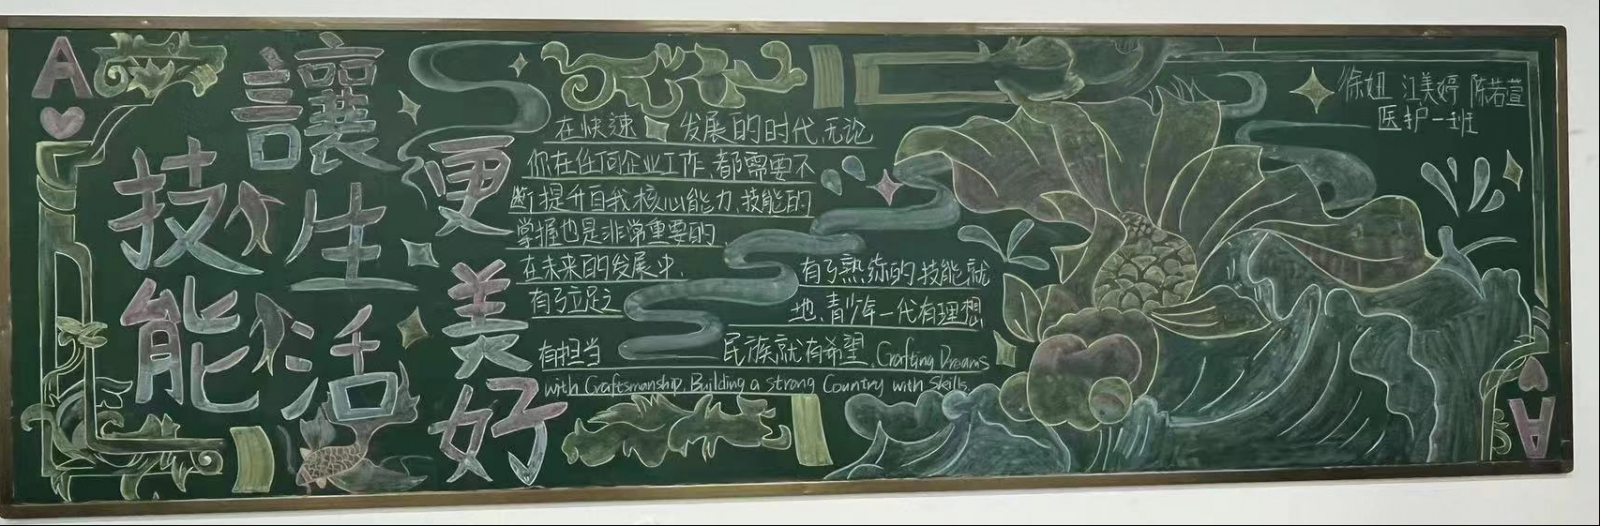 A
技能
讓生活
更美好
在快速发展的时代,无论
你在任何企业工作,都需要不
断提升自我核心能力、技能的
掌握也是非常重要的
在未来的发展中,有了熟练的技能就
有了立足之地,青少年一代有理想
有担当 民族就有希望。Crafting Dreams
with Craftsmanship, Building a strong Country with Skills.
徐妞 江美婷 陈若萱
医护一班
A